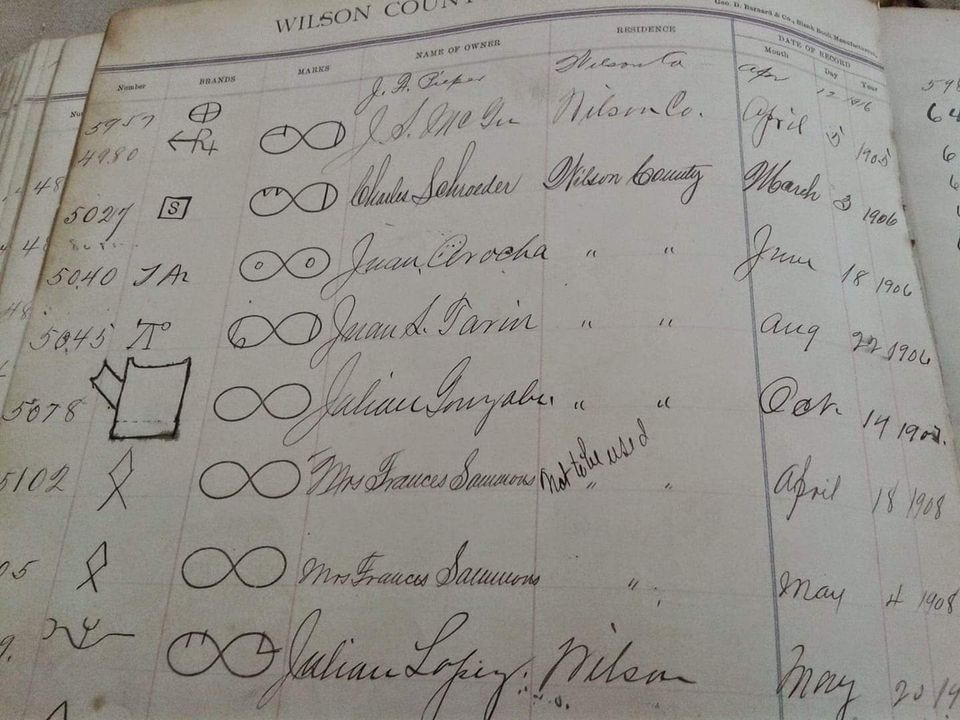 WILSON COUN
Geo. D. Barnard & Co., Blank Book Manufacturers,
Number BRANDS MARKS NAME OF OWNER RESIDENCE DATE OF RECORD
Month Day Year
5957 J. A. Pieper Wilson Co Apr 12 1916
4980 J. S. McGee Wilson Co. April 5 1905
5027 S Charles Schroeder Wilson County March 3 1906
5040 JAr Juan Arocha " " June 18 1906
5045 Juan S. Tarin " " Aug 22 1906
5078 Julian Gonzales " " Oct. 14 1907.
5102 Mrs Frances Sammons not to be used " " April 18 1908
05 Mrs Frances Sammons " " May 4 1908
9. Julian Lopez Wilson May 20 19